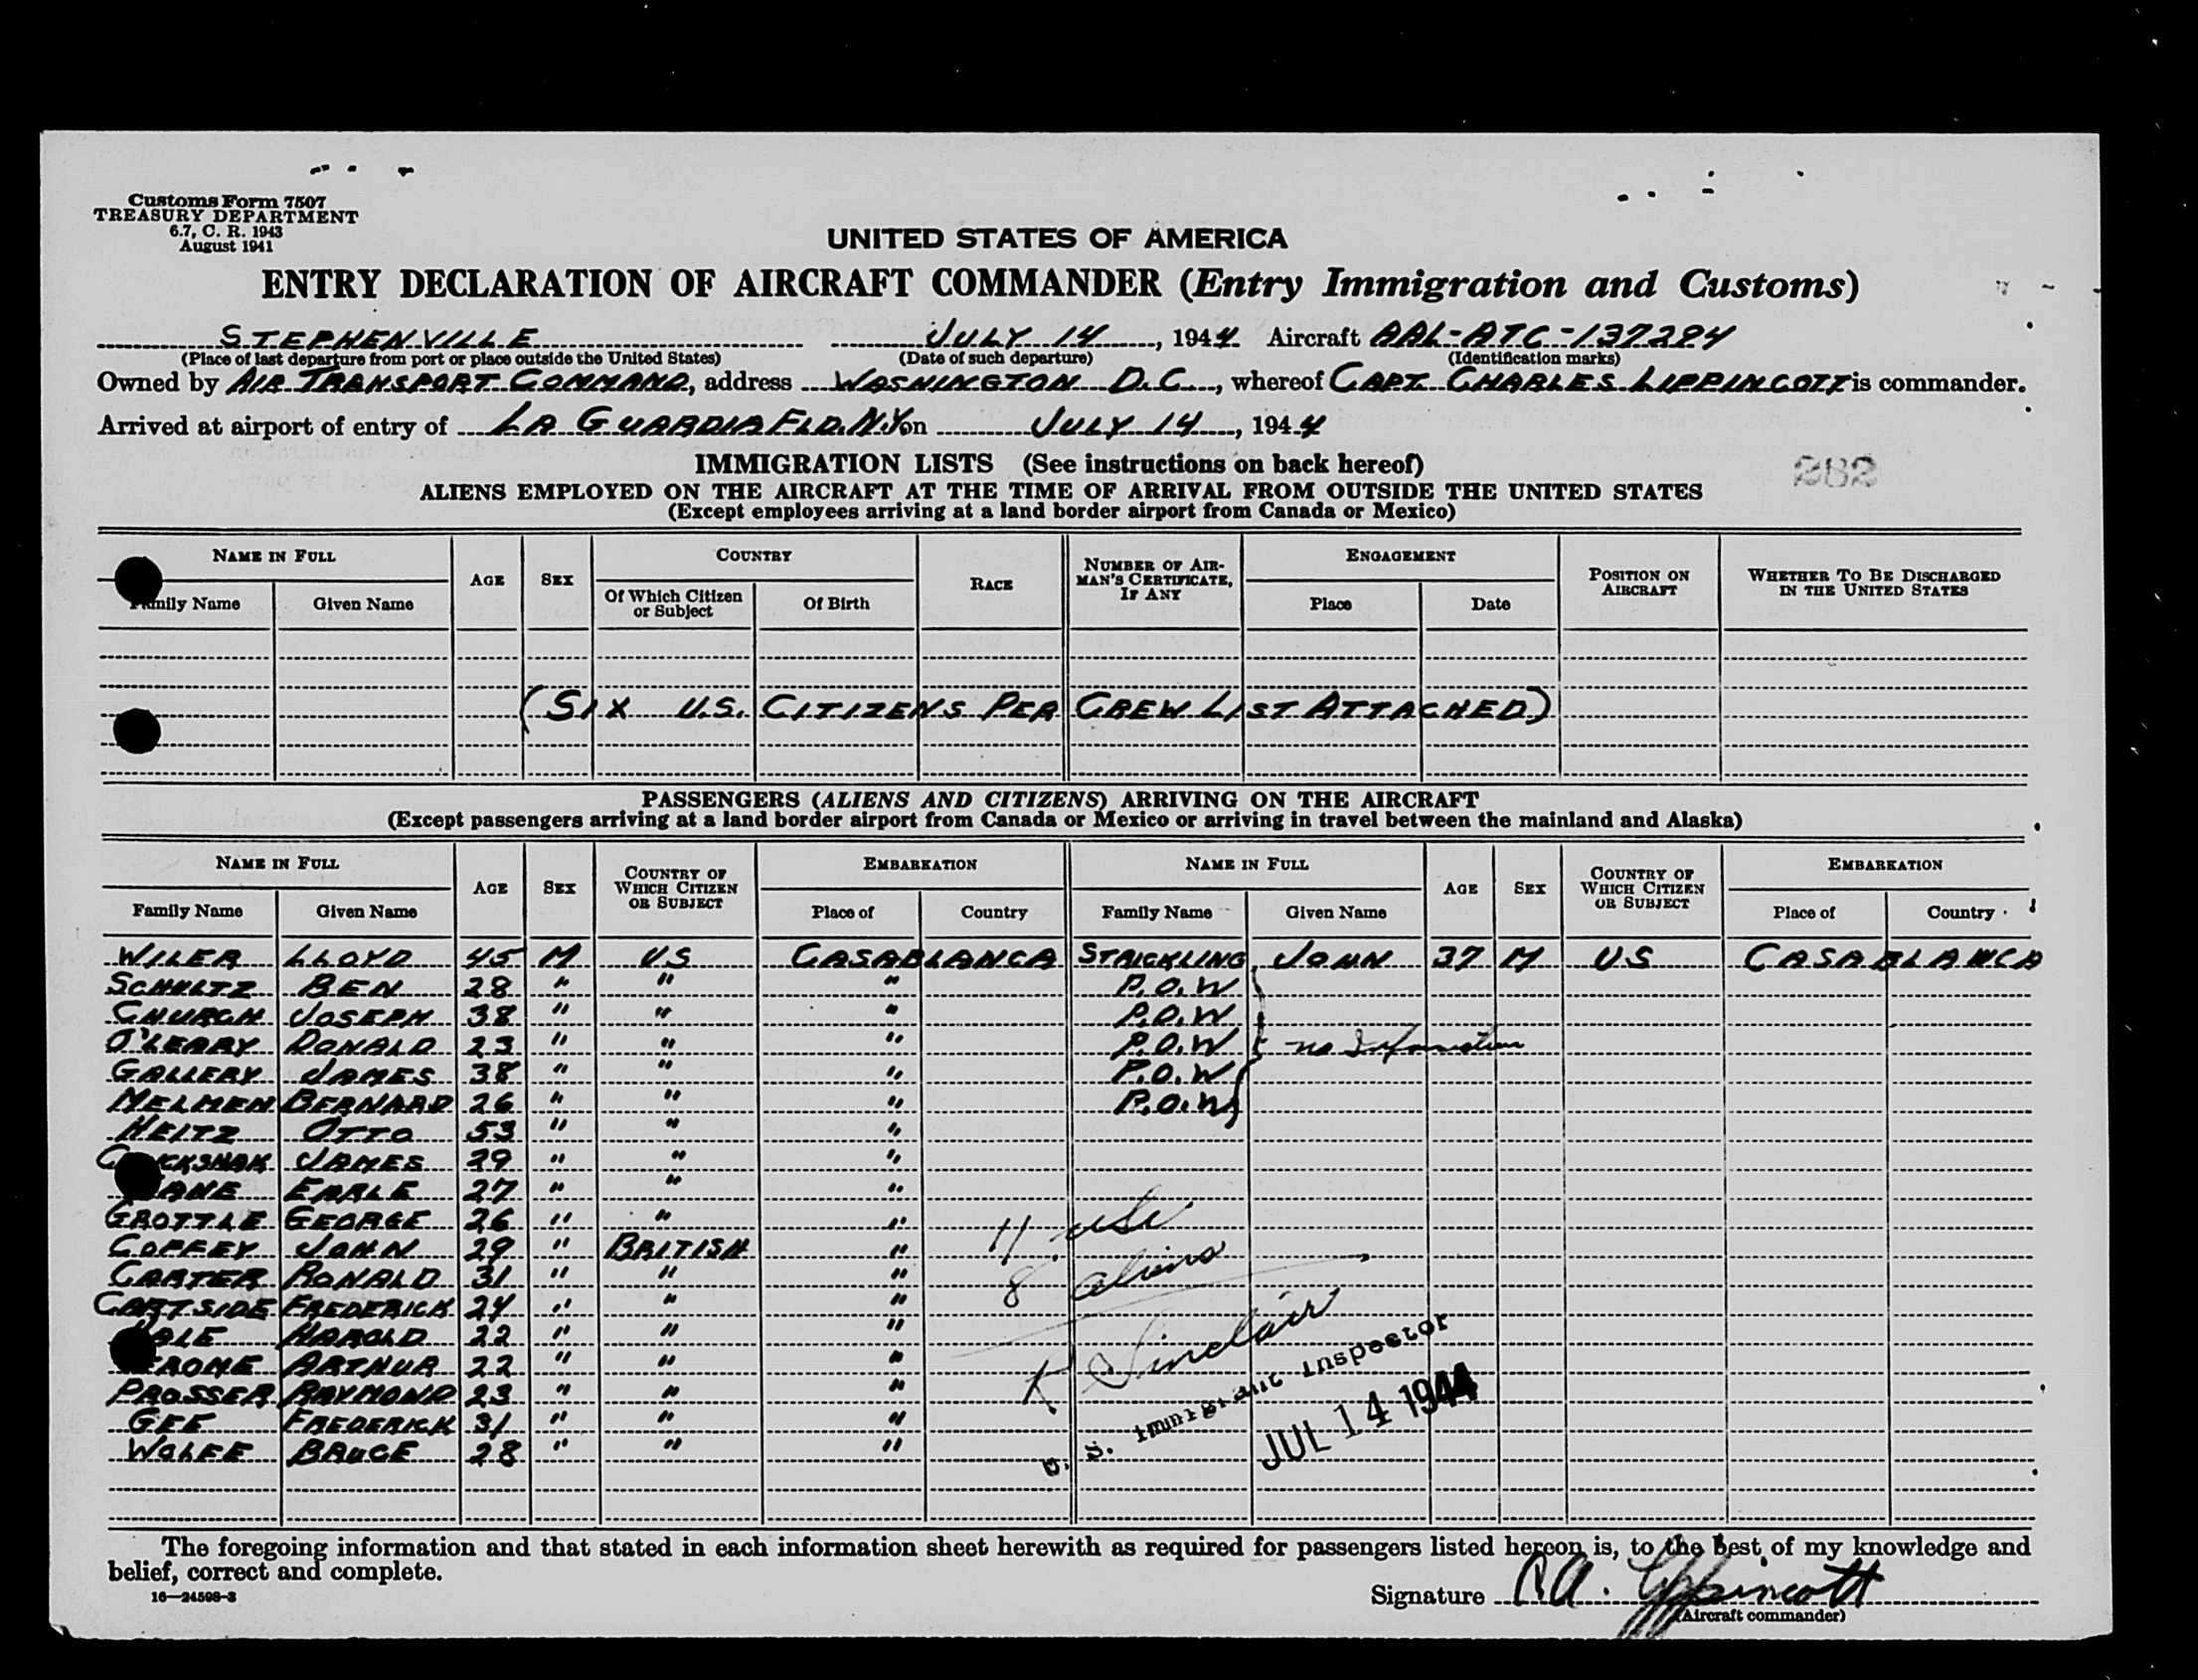 Customs Form 7507
TREASURY DEPARTMENT
6.7, C. R. 1943
August 1941
UNITED STATES OF AMERICA
ENTRY DECLARATION OF AIRCRAFT COMMANDER (Entry Immigration and Customs)
STEPHENVILLE JULY 14, 1944 Aircraft AAL-ATC-137284
(Place of last departure from port or place outside the United States) (Date of such departure) (Identification marks)
Owned by AIR TRANSPORT COMMAND, address WASHINGTON D.C., whereof CAPT. CHARLES LIPPINCOTT is commander.
Arrived at airport of entry of LA GUARDIA FLD. N.Y. on JULY 14, 1944
IMMIGRATION LISTS (See instructions on back hereof)
282
ALIENS EMPLOYED ON THE AIRCRAFT AT THE TIME OF ARRIVAL FROM OUTSIDE THE UNITED STATES
(Except employees arriving at a land border airport from Canada or Mexico)
NAME IN FULL AGE SEX COUNTRY RACE NUMBER OF AIRMAN'S CERTIFICATE, IF ANY ENGAGEMENT POSITION ON AIRCRAFT WHETHER TO BE DISCHARGED IN THE UNITED STATES
Family Name Given Name Of Which Citizen or Subject Of Birth Place Date
(SIX U.S. CITIZENS PER CREW LIST ATTACHED)
PASSENGERS (ALIENS AND CITIZENS) ARRIVING ON THE AIRCRAFT
(Except passengers arriving at a land border airport from Canada or Mexico or arriving in travel between the mainland and Alaska)
NAME IN FULL AGE SEX COUNTRY OF WHICH CITIZEN OR SUBJECT EMBARKATION NAME IN FULL AGE SEX COUNTRY OF WHICH CITIZEN OR SUBJECT EMBARKATION
Family Name Given Name Place of Country Family Name Given Name Place of Country
WILER LLOYD 45 M US CASABLANCA STRICKLING JOHN 37 M US CASABLANCA
SCHULTZ BEN 28 " " " P.O.W
CHURCH JOSEPH 38 " " " P.O.W
O'LEARY DONALD 23 " " " P.O.W no Information
GALLERY JAMES 38 " " " P.O.W
MELMEN BERNARD 26 " " " P.O.W
HEITZ OTTO 53 " " "
JAMES 29 " " "
EARLE 27 " " "
GROTTLE GEORGE 26 " " "
11 USC
COFFEY JOHN 29 " BRITISH "
8 aliens
CARTER RONALD 31 " " "
GARTSIDE FREDERICK 24 " " "
HAROLD 22 " " "
ARTHUR 22 " " "
PROSSER RAYMOND 23 " " "
GEE FREDERICK 31 " " "
WOLFE BRUCE 28 " " "
R Sinclair
U. S. Immigrant Inspector
JUL 14 1944
The foregoing information and that stated in each information sheet herewith as required for passengers listed hereon is, to the best of my knowledge and
belief, correct and complete.
16—24598-3
Signature Lippincott
(Aircraft commander)